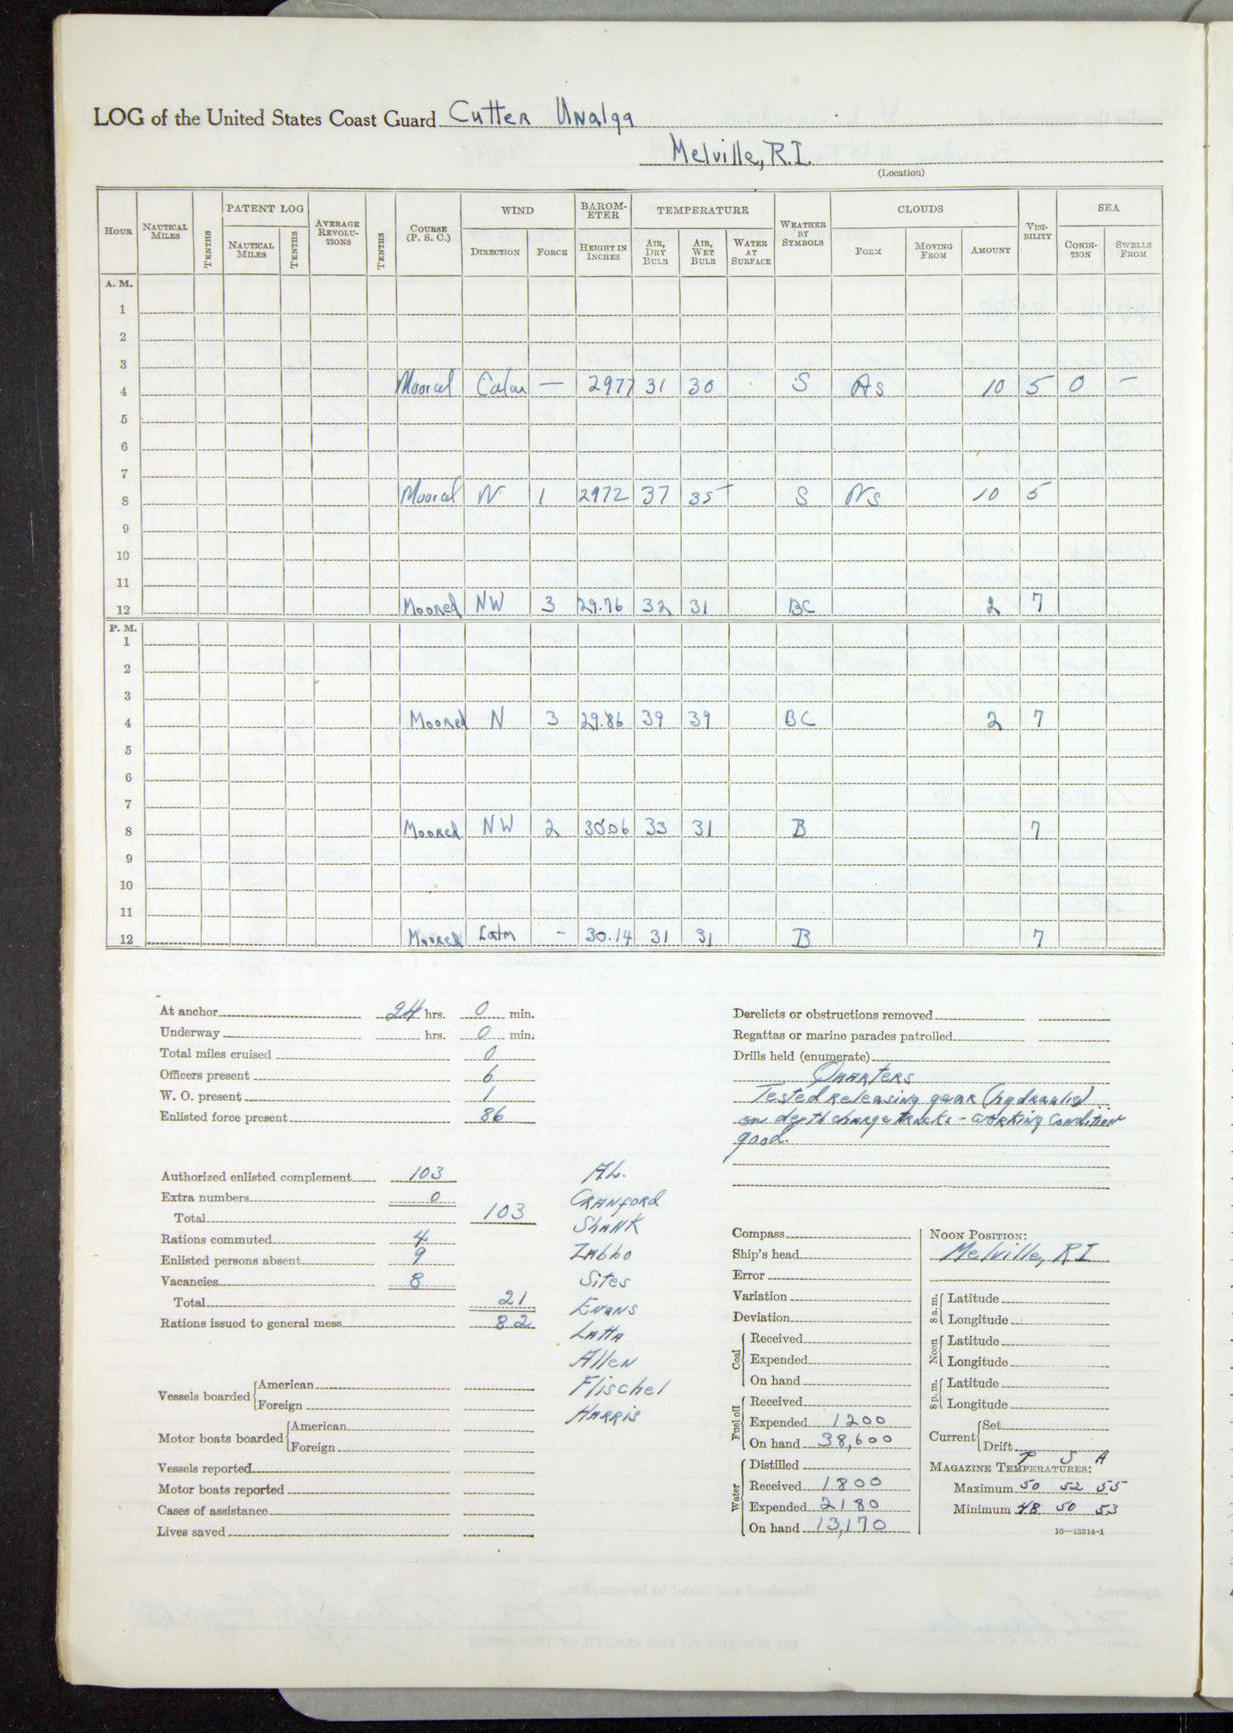 LOG of the United States Coast Guard Cutter Unalga
Melville, R.I.
(Location)
HOUR NAUTICAL MILES TENTHS PATENT LOG NAUTICAL MILES TENTHS AVERAGE REVOLUTIONS TENTHS COURSE (P. S. C.) WIND DIRECTION FORCE BAROMETER HEIGHT IN INCHES TEMPERATURE AIR, DRY BULB AIR, WET BULB WATER AT SURFACE WEATHER BY SYMBOLS CLOUDS FORM MOVING FROM AMOUNT VISIBILITY SEA CONDITION SWELLS FROM
A. M.
1
2
3
4 Moored Calm — 2977 31 30 S As 10 5 0 —
5
6
7
8 Moored N 1 2972 37 35 S Ns 10 5
9
10
11
12 Moored NW 3 29.76 32 31 BC 2 7
P. M.
1
2
3
4 Moored N 3 29.86 39 39 BC 2 7
5
6
7
8 Moored NW 2 30.06 33 31 B 7
9
10
11
12 Moored Calm - 30.14 31 31 B 7
At anchor 24 hrs. 0 min.
Underway hrs. 0 min.
Total miles cruised 0
Officers present 6
W. O. present 1
Enlisted force present 86
Authorized enlisted complement 103
Extra numbers 0
Total 103
Rations commuted 4
Enlisted persons absent 9
Vacancies 8
Total 21
Rations issued to general mess 82
Vessels boarded American
Foreign
Motor boats boarded American
Foreign
Vessels reported
Motor boats reported
Cases of assistance
Lives saved
A.L.
Cranford
Shank
Zabbo
Sites
Evans
Latta
Allen
Flischel
Harris
Derelicts or obstructions removed
Regattas or marine parades patrolled
Drills held (enumerate)
Quarters
Tested releasing gear (hydraulic)
on depth charge tracks - working condition
good.
Compass
Ship's head
Error
Variation
Deviation
Coal Received
Expended
On hand
Fuel oil Received
Expended 1200
On hand 38,600
Water Distilled
Received 1800
Expended 2180
On hand 13,170
NOON POSITION:
Melville, RI
8 a. m. Latitude
Longitude
Noon Latitude
Longitude
8 p. m. Latitude
Longitude
Current Set
Drift
F S A
MAGAZINE TEMPERATURES:
Maximum 50 52 55
Minimum 48 50 53
16—13314-1